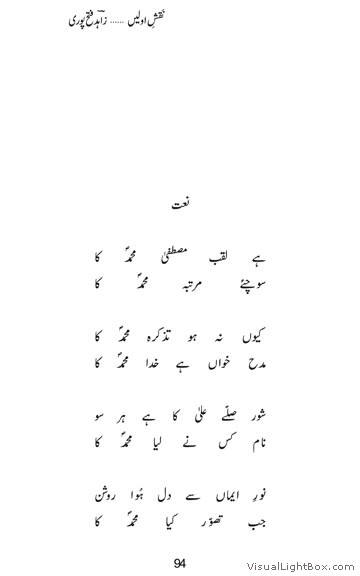 نقشِ اولیں ...... زاہد فتح پوری
نعت
ہے لقب مصطفیٰ محمدؐ کا
سوچئے مرتبہ محمدؐ کا
کیوں نہ ہو تذکرہ محمدؐ کا
مدح خواں ہے خدا محمدؐ کا
شور صلّے علیٰ کا ہے ہر سو
نام کس نے لیا محمدؐ کا
نورِ ایماں سے دل ہُوا روشن
جب تصوّر کیا محمدؐ کا
94
VisualLightBox.com